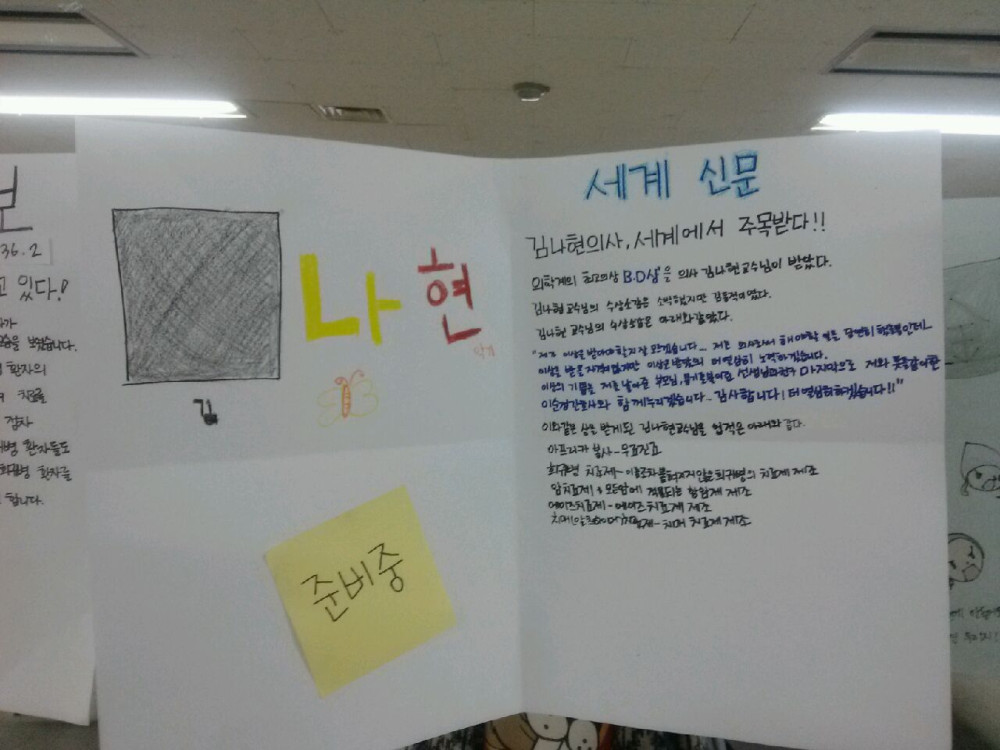 보
36.2
고 있다!
습을 보였습니다.
환자의
점차
귀병 환자들도
희귀병 환자를
합니다.
나
현
김
준비중
세계 신문
김나현의사, 세계에서 주목받다!!
의학계의 최고의상 B.D상을 의사 김나현교수님이 받았다.
김나현교수님의 수상소감은 소박했지만 감동적이였다.
김나현 교수님의 수상소감은 아래와같았다.
"제가 이상을 받아야할지 잘 모르겠습니다... 저는 의사로서 해야할 일을 당연히 했을뿐인데...
이상을 받을자격이없지만 이상으로 더 열심히 노력하겠습니다.
이모의 기쁨을 저를 낳아준 부모님, 선생님과친구 마지막으로 저와 동감이한
이순경간호사와 함께누리겠습니다... 감사합니다! 더 열심히하겠습니다!!"
이와같은 상을 받게된 김나현교수님을 업적은 아래와 같다.
아프리카 봉사-무료진료
희귀병 치료제- 희귀병의 치료제 제조
암치료제 모든암에 적용되는 항암제 제조
에이즈치료제-에이즈치료제 제조
치매 치료제 제조